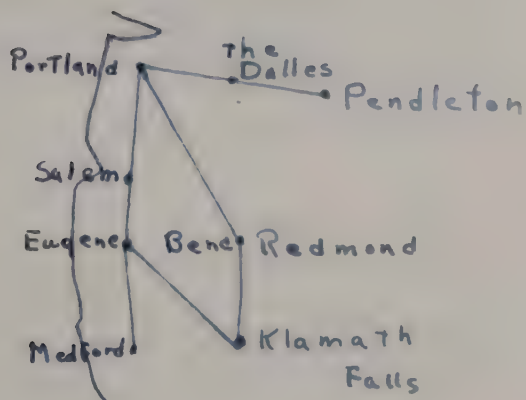 Portland
The
Dalles
Pendleton
Salem
Eugene
Bend Redmond
Medford
Klamath
Falls